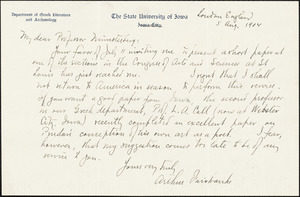 Department of Greek Literature
and Archæology
The State University of Iowa
Iowa City
London England
5 Aug. 1904
My dear Professor Münsterberg:
Your favor of July 11 inviting me to present a short paper at
one of the sections in the Congress of Arts and Sciences at St
Louis has just reached me. I regret that I shall
not return to America in season to perform this service.
If you want a good paper from Iowa, the second professor
in our Greek department, (Prof. L. A. Call (now at Webster
City, Iowa) recently completed an excellent paper on
Pindar's conception of his own art as a poet. I fear,
however, that my suggestion comes too late to be of any
service to you.
Yours very truly,
Arthur Fairbanks